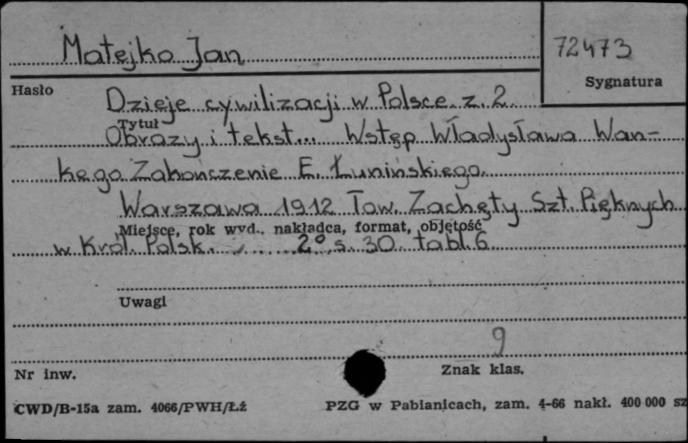 Matejko Jan
72473
Hasło
Sygnatura
Dzieje cywilizacji w Polsce. z. 2.
Tytuł
Obrazy i tekst... Wstęp Władysława Wan-
kego. Zakończenie E. Łunińskiego.
Warszawa 1912 Tow. Zachęty Szt. Pięknych
Miejsce, rok wyd., nakładca, format, objętość
w Król. Polsk. 2° s. 30. tabl. 6
Uwagi
9
Nr inw.
Znak klas.
CWD/B-15a zam. 4066/PWH/Łż
PZG w Pabianicach, zam. 4-66 nakł. 400 000 sz